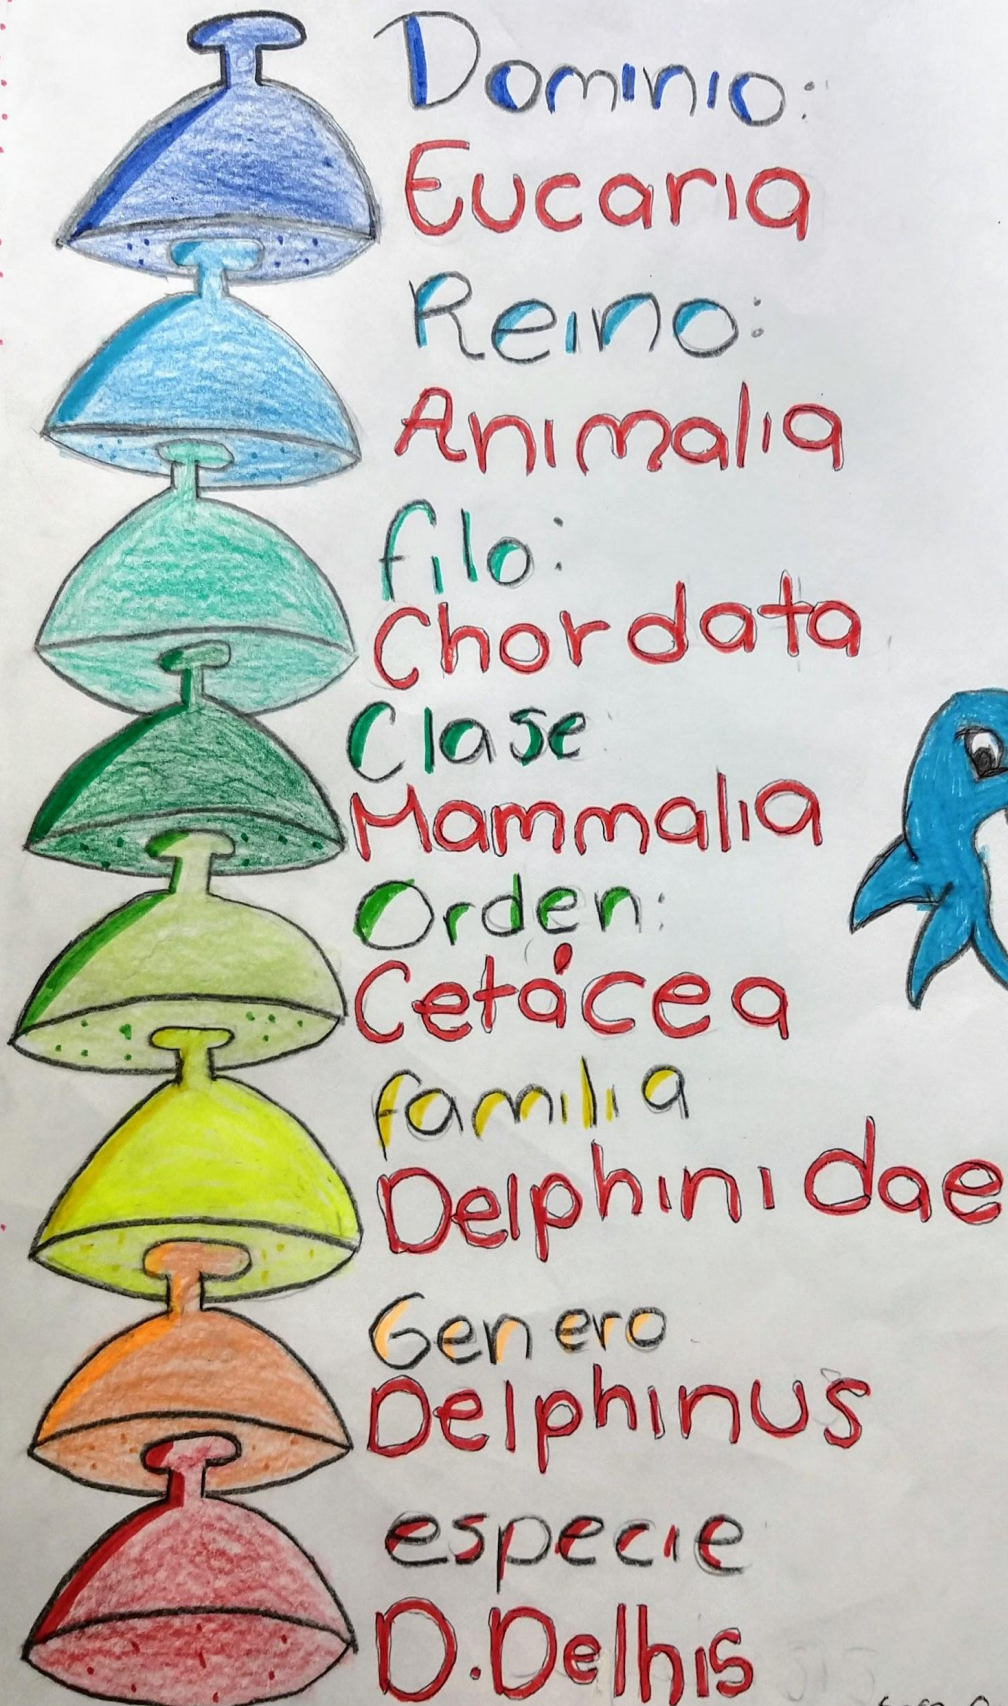 Dominio:
Eucaria
Reino:
Animalia
filo:
Chordata
Clase
Mammalia
Orden:
Cetácea
familia
Delphinidae
Genero
Delphinus
especie
D.Delhis